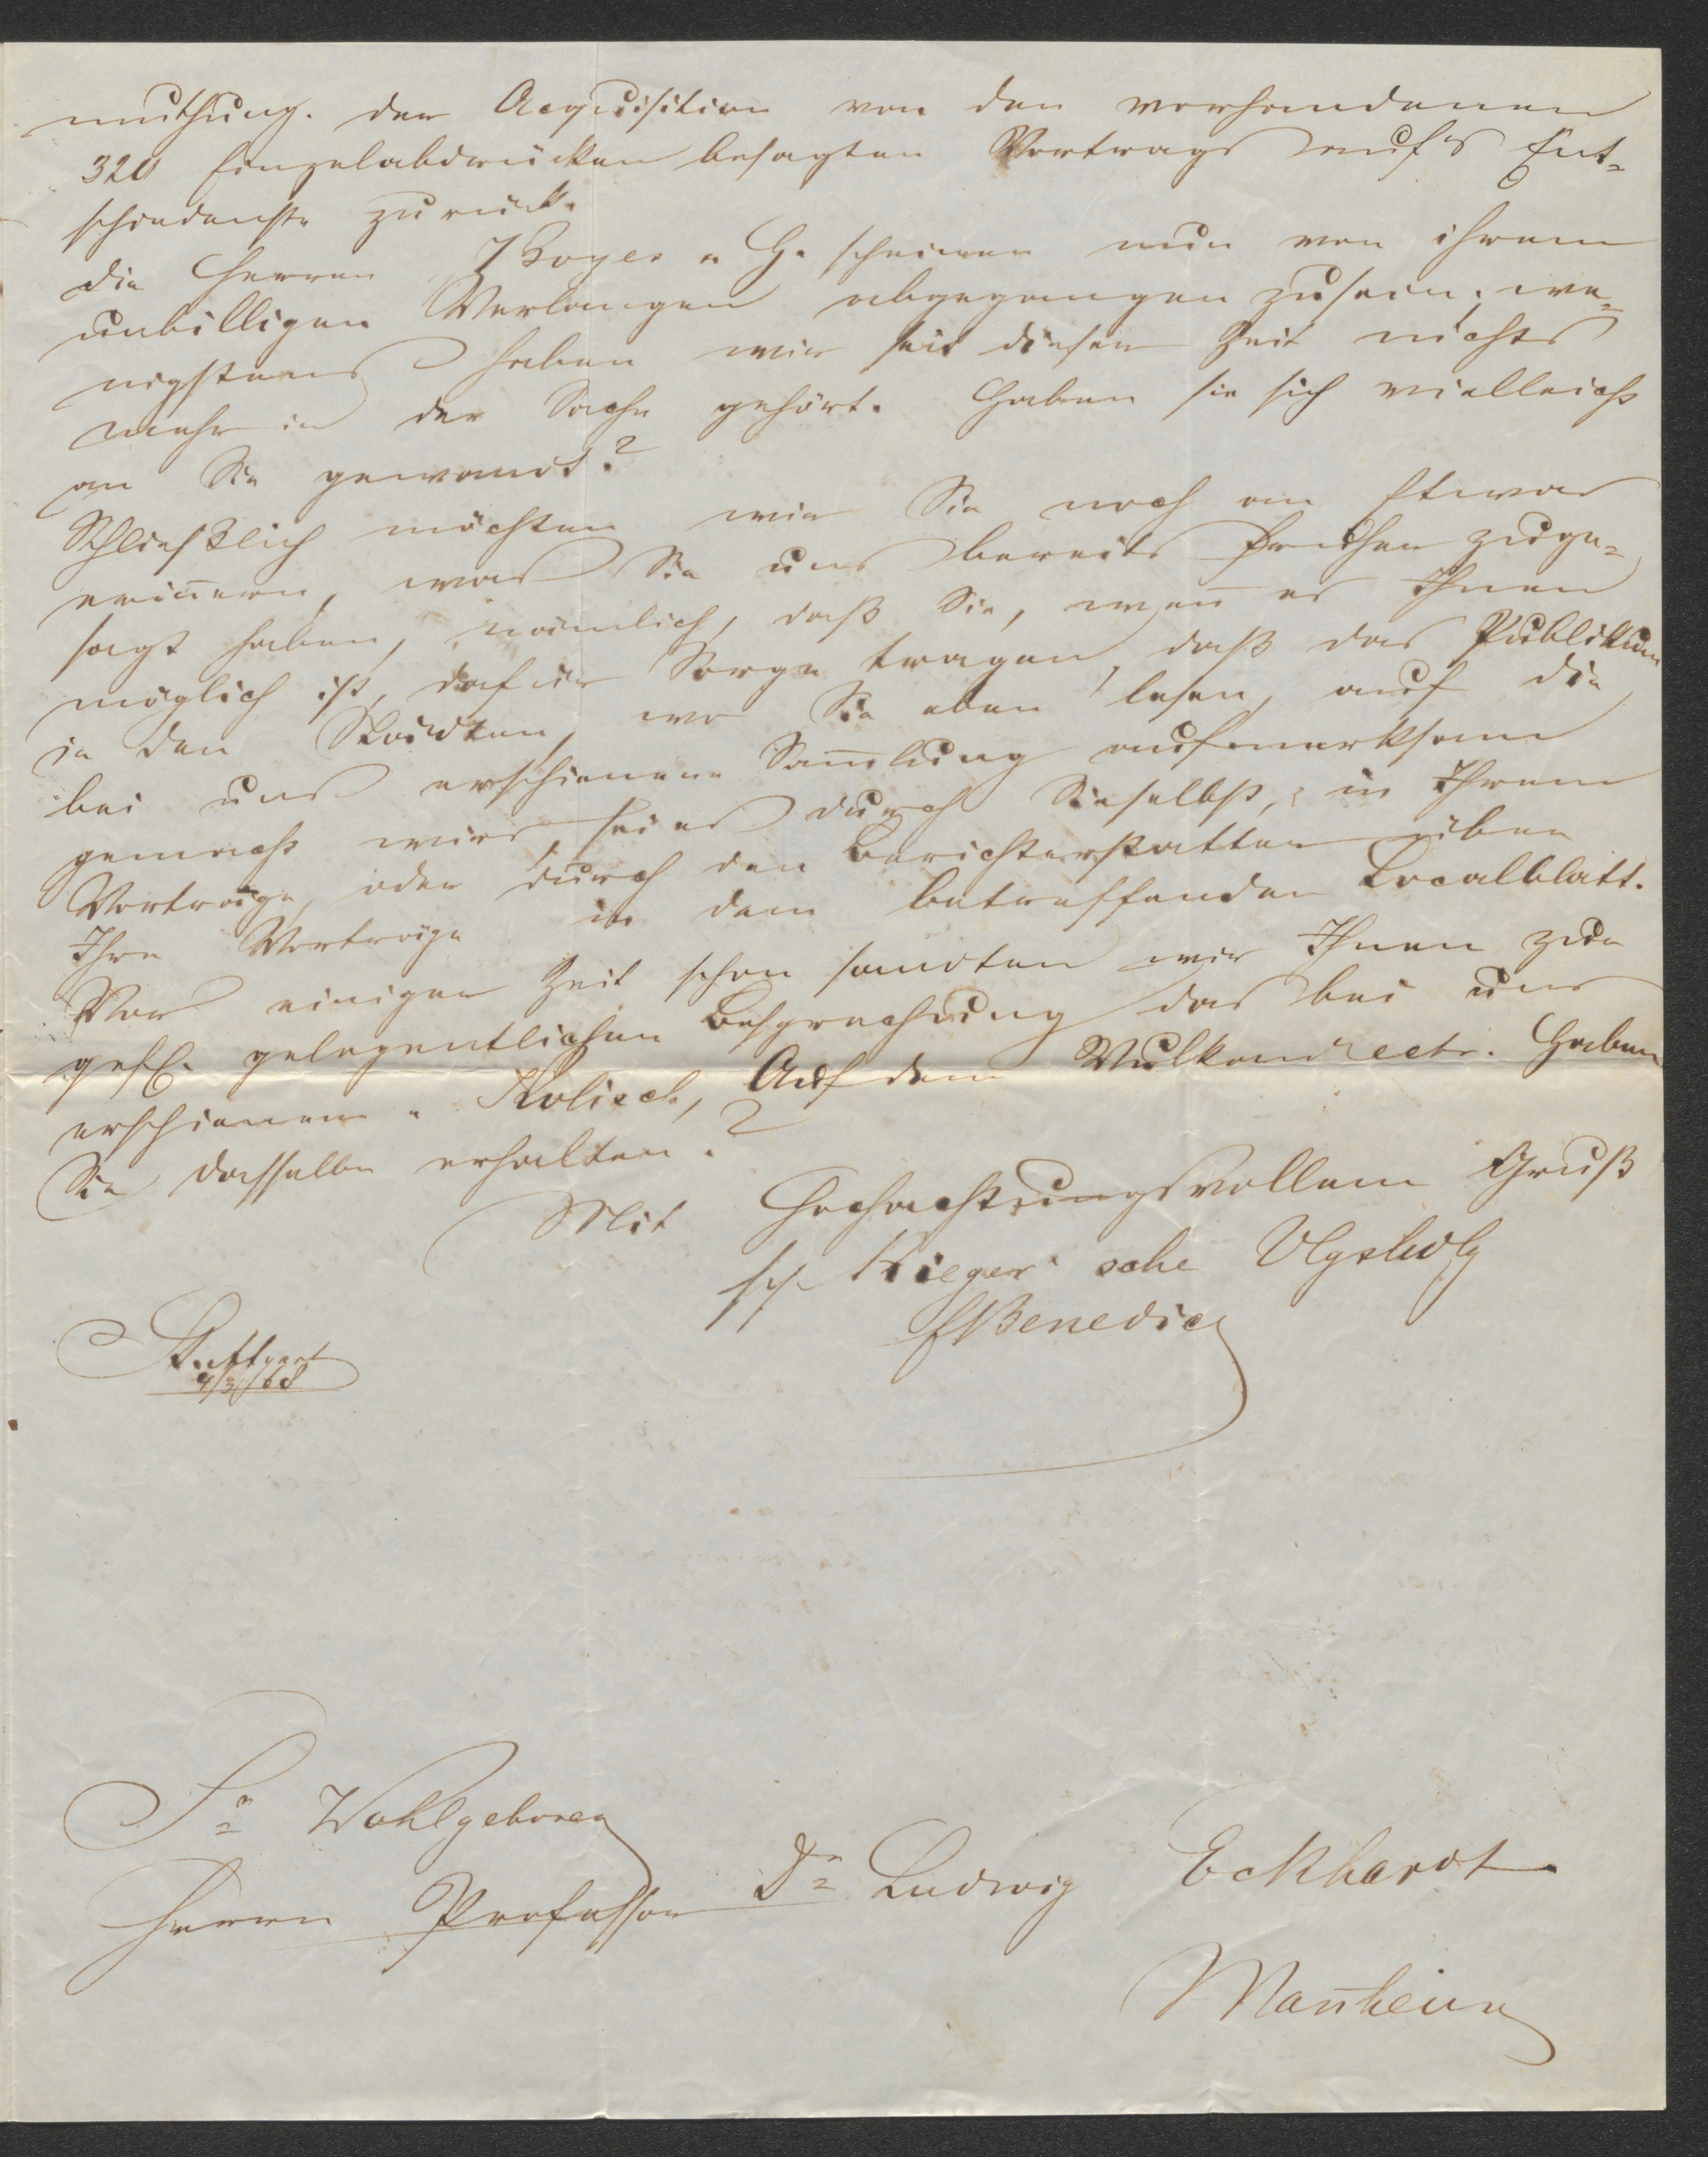 muthung. der Acquisition von den vorhandenen
320 Einzelabdrücken besagten Vortrags auf's Ent-
schiedenste zurück.
Die Herren u. G. scheinen nun von ihrem
unbilligen Verlangen abgegangen zu sein; we-
nigstens haben wir seit dieser Zeit nichts
mehr in der Sache gehört. Haben sie sich vielleicht
an Sie gewandt?
Schließlich möchten wir Sie noch an Etwas
erin̄ern, was Sie uns bereits früher zuge-
sagt haben, nämlich, daß Sie, wen̄ es Ihnen
möglich ist, dafür Sorge tragen, daß das Publikum
in den Städten, wo Sie eben lesen, auf die
bei uns erschienene Sam̄lung aufmerksam
gemacht wird, sei es durch Sie selbst, in Ihrem
Vortrage, oder durch den Berichterstatter über
Ihre Vorträge in dem betreffenden Localblatt.
Vor einiger Zeit schon sandten wir Ihnen zur
gefl. gelegentlichen Besprechung das bei uns
erschienene Kolisch, Auf dem Vulkan etc. Haben
Sie dasselbe erhalten?
Mit Hochachtungsvollem Gruß
Rieger'sche Vlgshdlg
Benedict
Stuttgart
9/3/68
Sr Wohlgeboren
Herrn Professor Dr Ludwig Eckhardt
Man̄heim